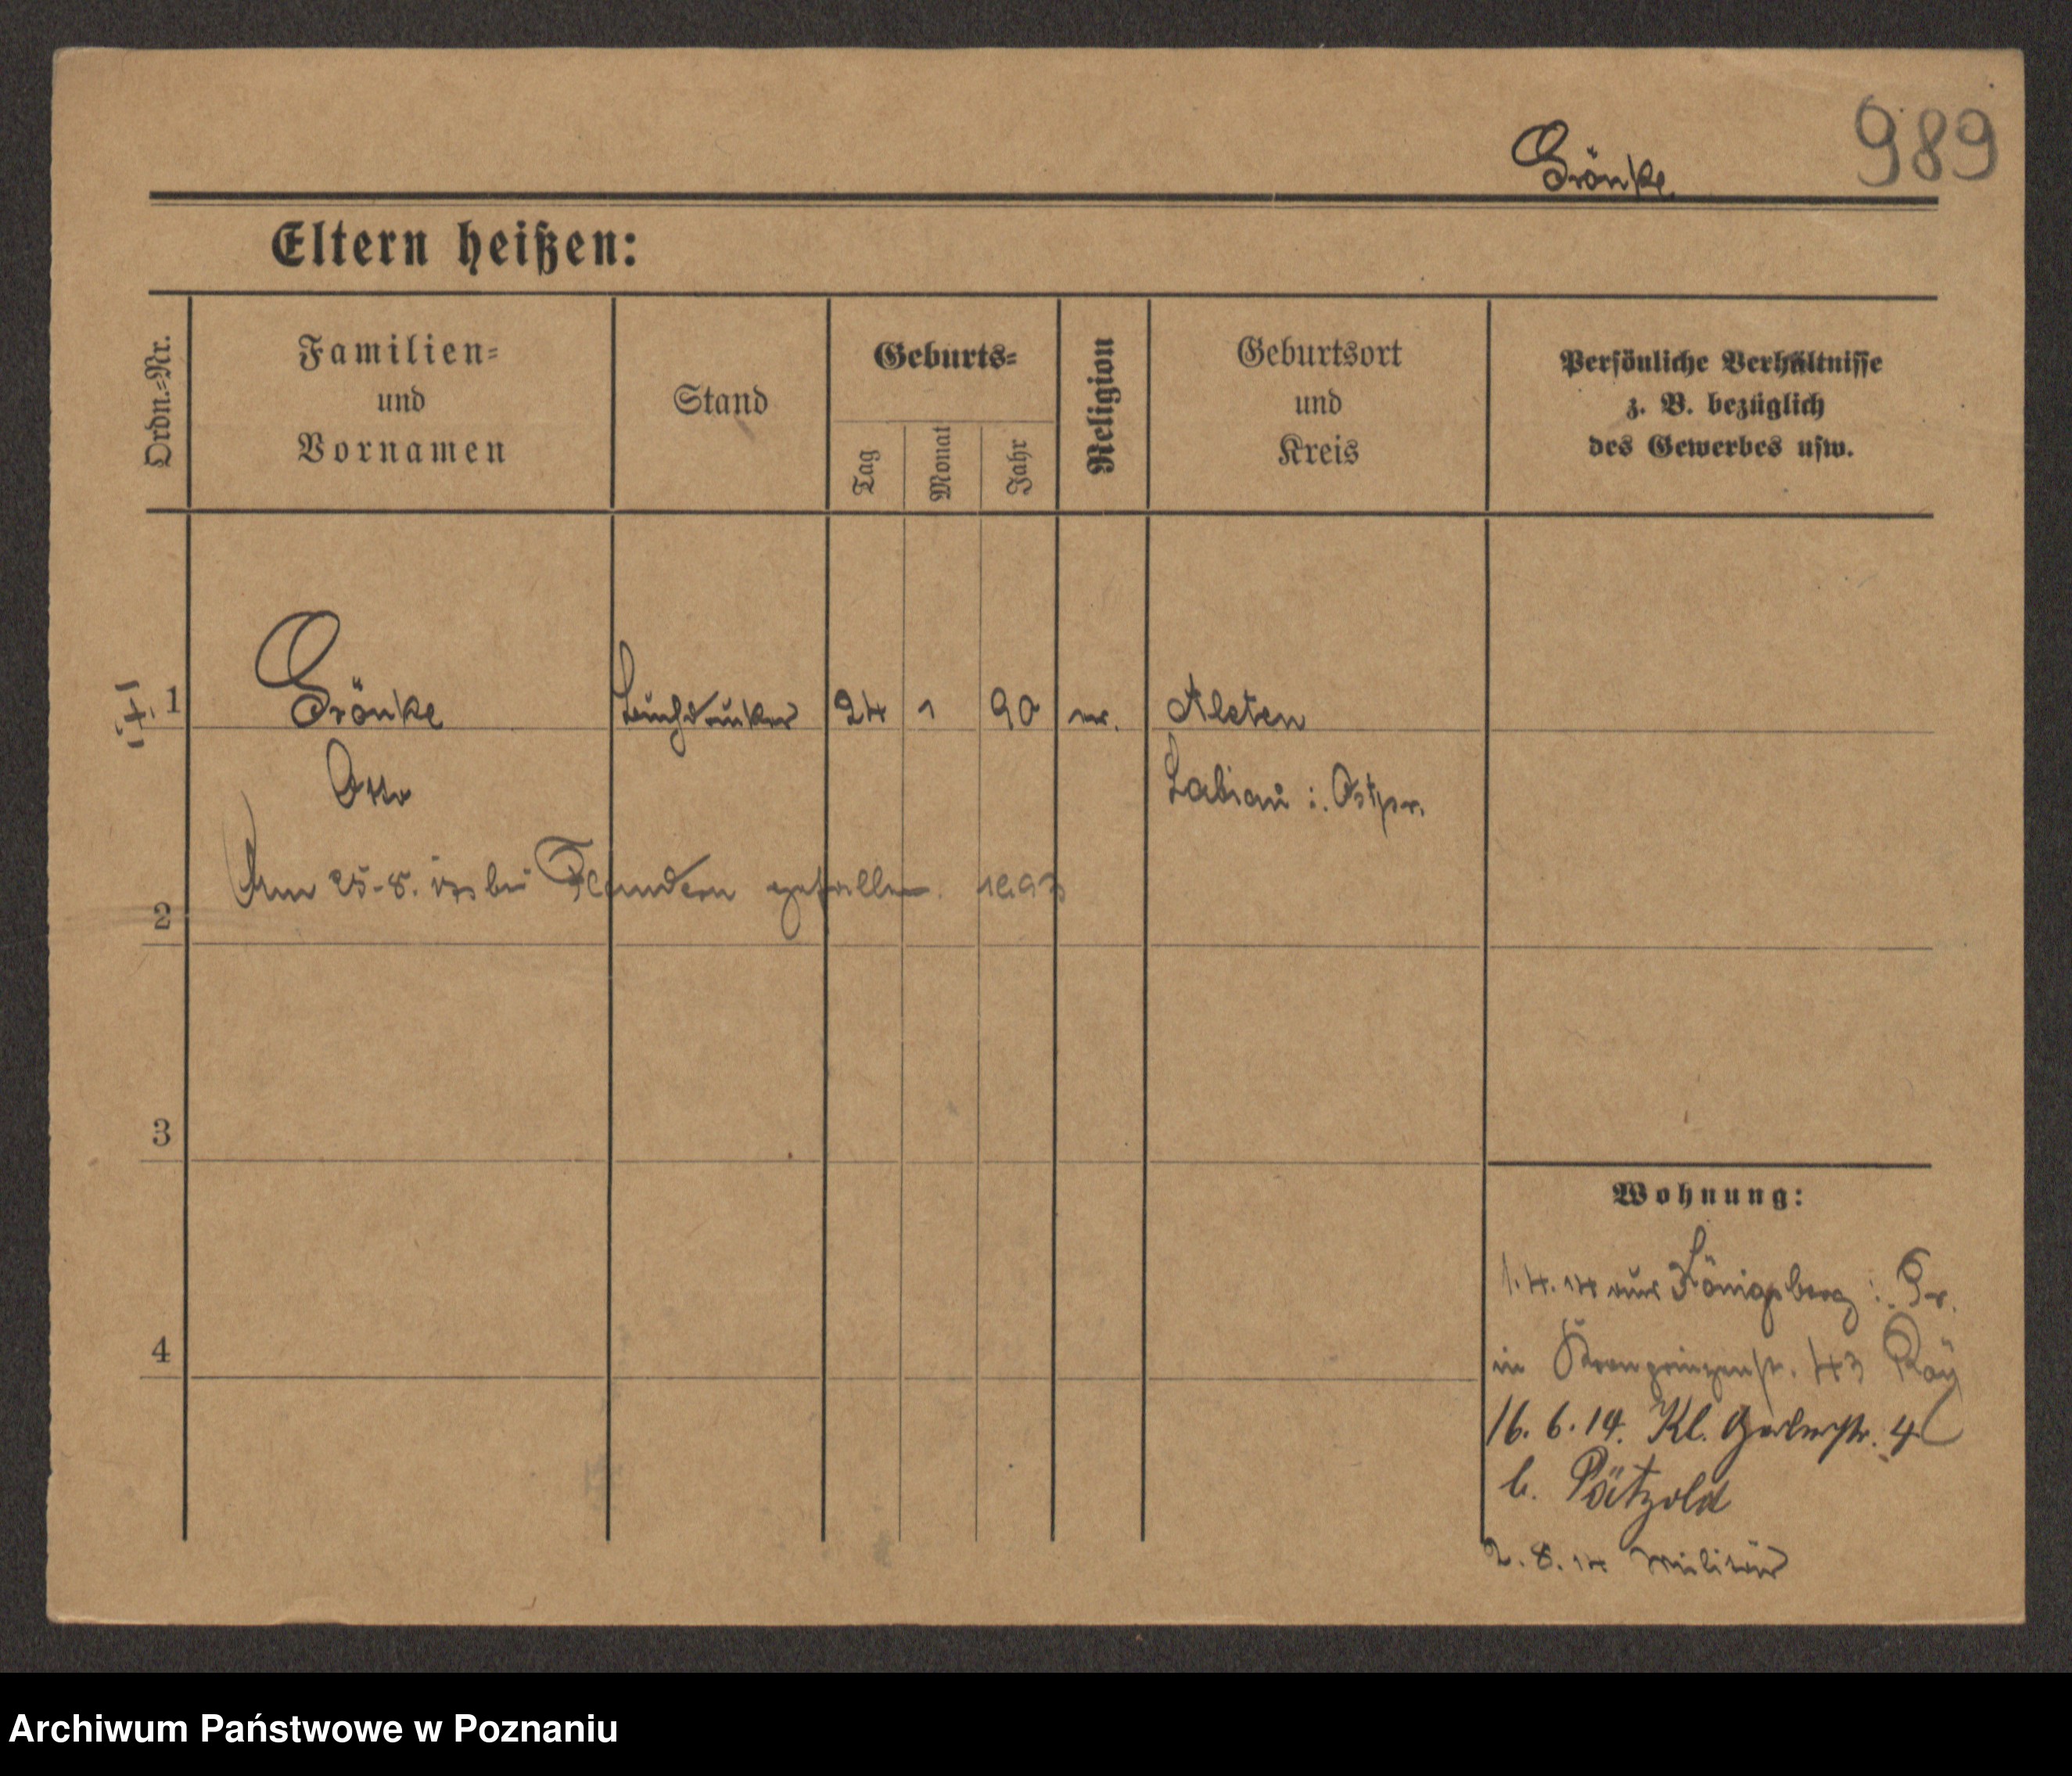 Grönke
989
Eltern heißen:
Ordn.=Nr.
Familien=
und
Vornamen
Stand
Geburts=
Tag
Monat
Jahr
Religion
Geburtsort
und
Kreis
Persönliche Verhältnisse
z. B. bezüglich
des Gewerbes usw.
1
Grönke Buchdrucker 24 1 90 Aleten
Otto Labiau i. Ostpr.
Am 25.8. bei Flandern gefallen
2
3
4
Wohnung:
1.4.14 aus Königsberg i. Pr.
in Kronprinzenstr. 43
16. 6. 14. Kl. Gerberstr. 4
b. Pätzold
2. 8. 14 Militär
Archiwum Państwowe w Poznaniu